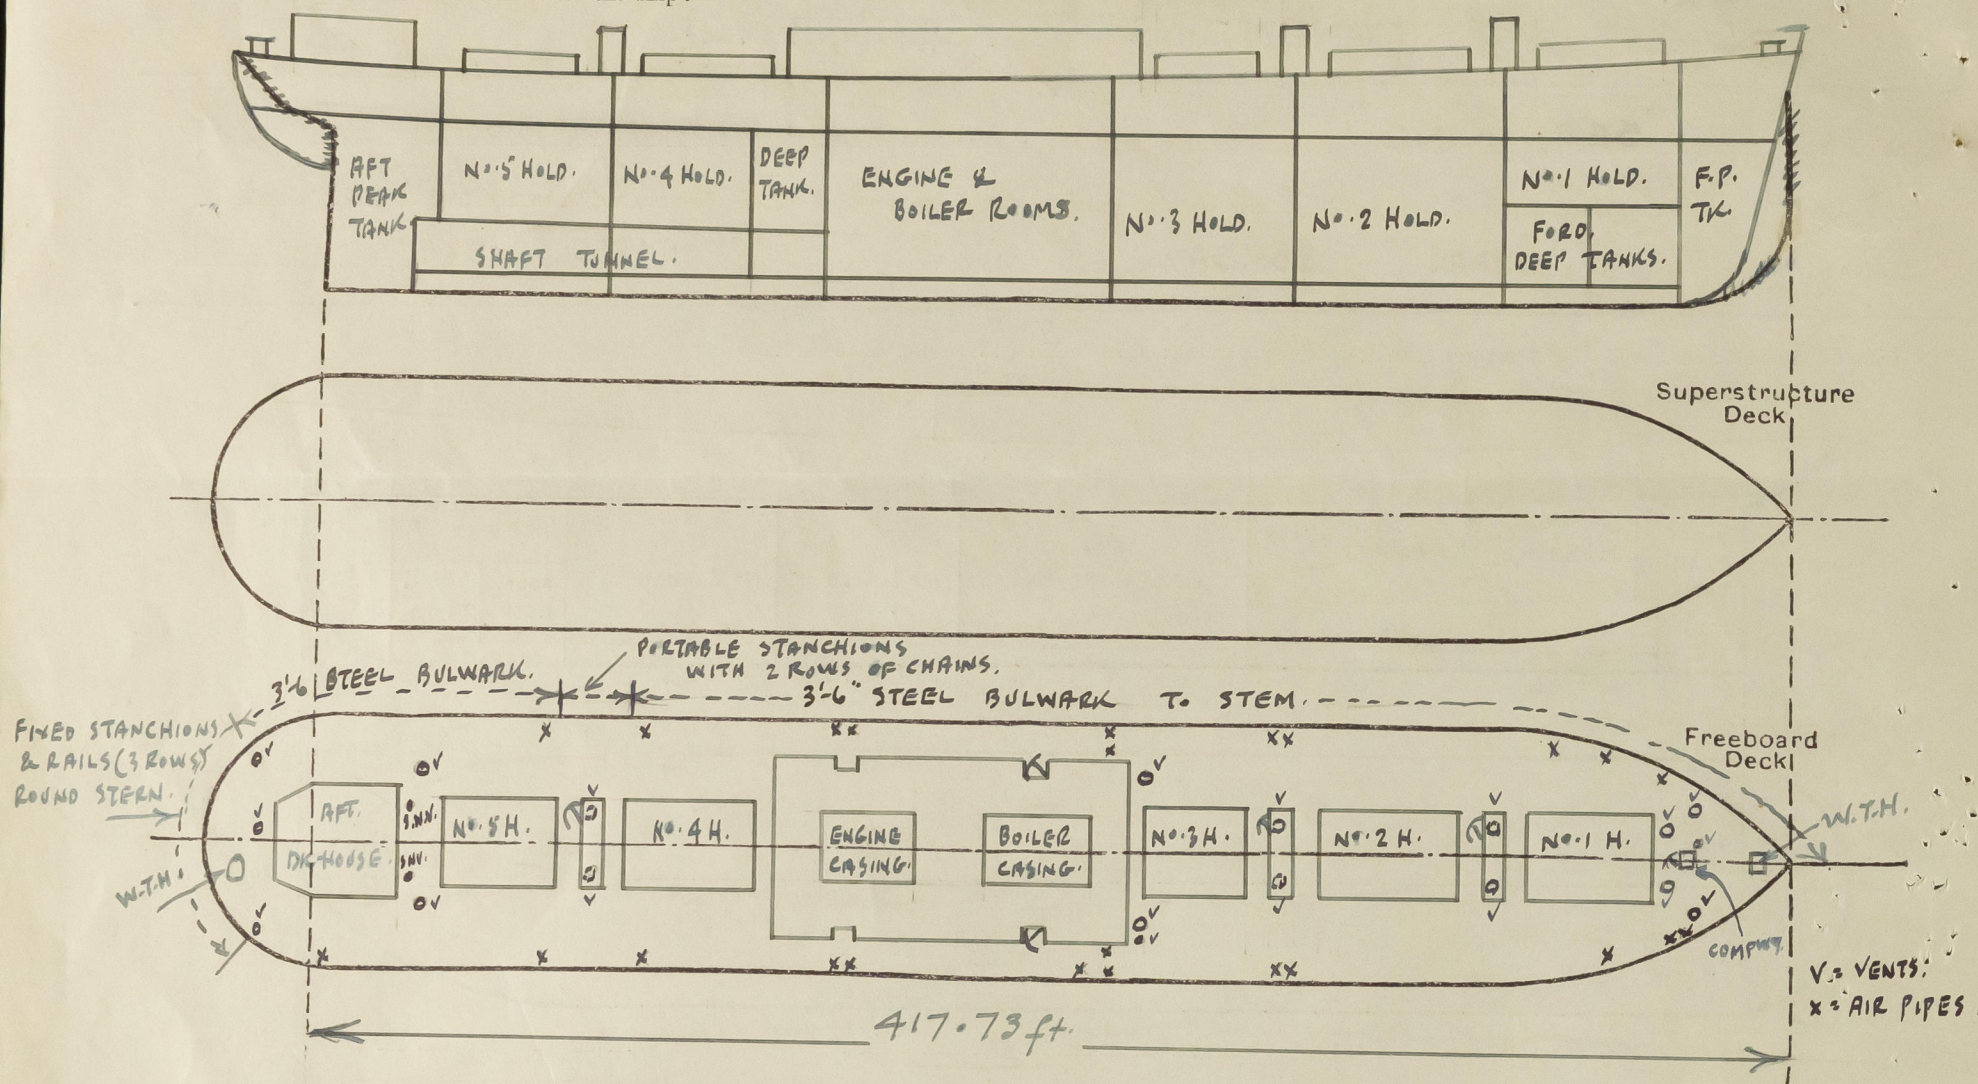 AFT
PEAK
TANK.
No.5 HOLD.
No.4 HOLD.
DEEP
TANK.
ENGINE &
BOILER ROOMS.
No.3 HOLD.
No.2 HOLD.
No.1 HOLD.
FORD.
DEEP TANKS.
F.P.
TK.
SHAFT TUNNEL.
Superstructure
Deck
PORTABLE STANCHIONS
WITH 2 ROWS OF CHAINS.
3'-6 STEEL BULWARK.
3'-6" STEEL BULWARK TO STEM.
FIXED STANCHIONS
& RAILS (3 ROWS)
ROUND STERN.
Freeboard
Deck
W.T.H.
AFT.
DK HOUSE.
No.5 H.
No.4 H.
ENGINE
CASING.
BOILER
CASING.
No.3 H.
No.2 H.
No.1 H.
W.T.H.
V = VENTS.
X = AIR PIPES
417.73 ft.